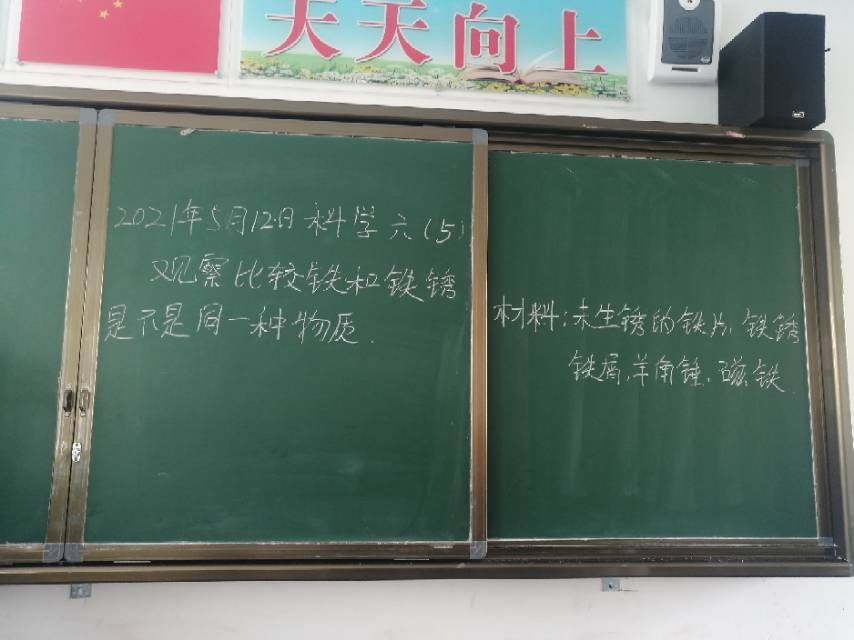 天天向上
2021年5月12日 科学 六(5)
观察比较铁和铁锈
是不是同一种物质.
材料:未生锈的铁片、铁锈
铁屑、羊角锤、磁铁